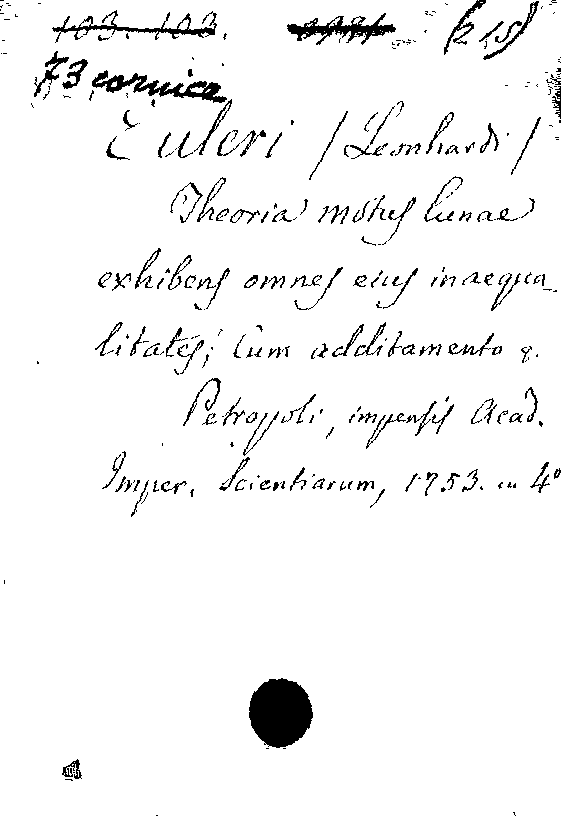 103. 103. (215)
73 cornice
Euleri /Leonhardi/
Theoria motus lunae
exhibens omnes eius inaequa
litates; Cum additamento &.
Petropoli, impensis Acad.
Imper. Scientiarum, 1753. in 4°